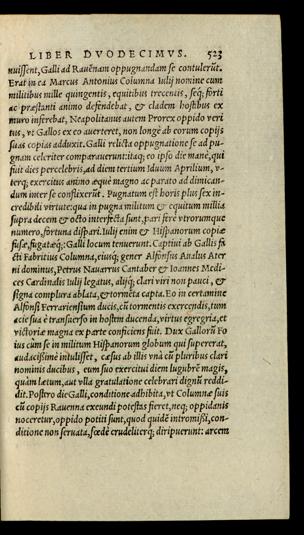 LIBER DVODECIMVS. 523
nuissent, Galli ad Rauẽnam oppugnandam se contulerũt.
Erat in ea Marcus Antonius Columna Iulij nomine cum
militibus mille quingentis, equitibus trecentis, seq; forti
ac præstanti animo defendebat, & cladem hostibus ex
muro inferebat, Neapolitanus autem Prorex oppido veri
tus, vt Gallos ex eo auerteret, non longè ab eorum copijs
suas copias adduxit. Galli relicta oppugnatione se ad pu-
gnam celeriter comparauerunt:itaq; eo ipso die manè, qui
fuit dies percelebris, ad diem tertium Iduum Aprilium, v-
terq; exercitus animo æquè magno ac parato ad dimican-
dum inter se conflixerũt. Pugnatum est horis plus sex in-
credibili virtute: qua in pugna militum & equitum millia
supra decem & octo interfecta sunt, pari ferè vtrorumque
numero, fortuna dispari. Iulij enim & Hispanorum copiæ
fusæ, fugatæq;: Galli locum tenuerunt. Captiui ab Gallis fa
cti Fabritius Columna, eiusq; gener Alfonsus Aualus Ater
ni dominus, Petrus Nauarrus Cantaber & Ioannes Medi-
ces Cardinalis Iulij legatus, alijq; clari viri non pauci, &
signa complura ablata, & tormẽta capta. Eo in certamine
Alfonsi Ferrariensium ducis, cũ tormentis exercendis, tum
acie sua è transuerso in hostem ducenda, virtus egregia, et
victoriæ magna ex parte conficiens fuit. Dux Gallorũ Fo
ius cùm se in militum Hispanorum globum qui supererat,
audacissimè intulisset, cæsus ab illis vnà cũ pluribus clari
nominis ducibus, eum suo exercitui diem lugubrẽ magis,
quàm lætum, aut vlla gratulatione celebrari dignũ reddi-
dit. Postero die Galli, conditione adhibita, vt Columnæ suis
cũ copijs Rauenna exeundi potestas fieret, neq; oppidanis
noceretur, oppido potiti sunt, quod quidẽ intromissi, con-
ditione non seruata, fœdè crudeliterq; diripuerunt: arcem